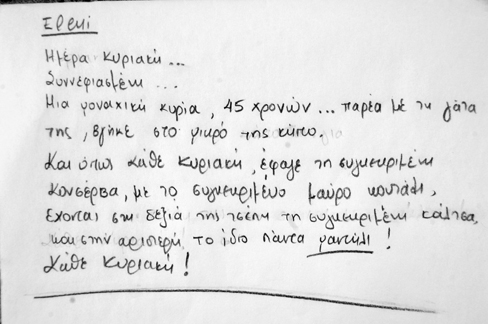 Ελενί
Ημέρα Κυριακή...
Συννεφιασμένη...
Μια μοναχική κυρία, 45 χρονών... παρέα με τη γάτα
της, βγήκε στο μικρό της κήπο.
Και όπως κάθε Κυριακή, έφαγε τη συγκεκριμένη
κονσέρβα, με το συγκεκριμένο μαύρο κουτάλι,
έχοντας στη δεξιά της τσέπη τη συγκεκριμένη κάλτσα,
και στην αριστερή το ίδιο πάντα μαντήλι!
Κάθε Κυριακή!